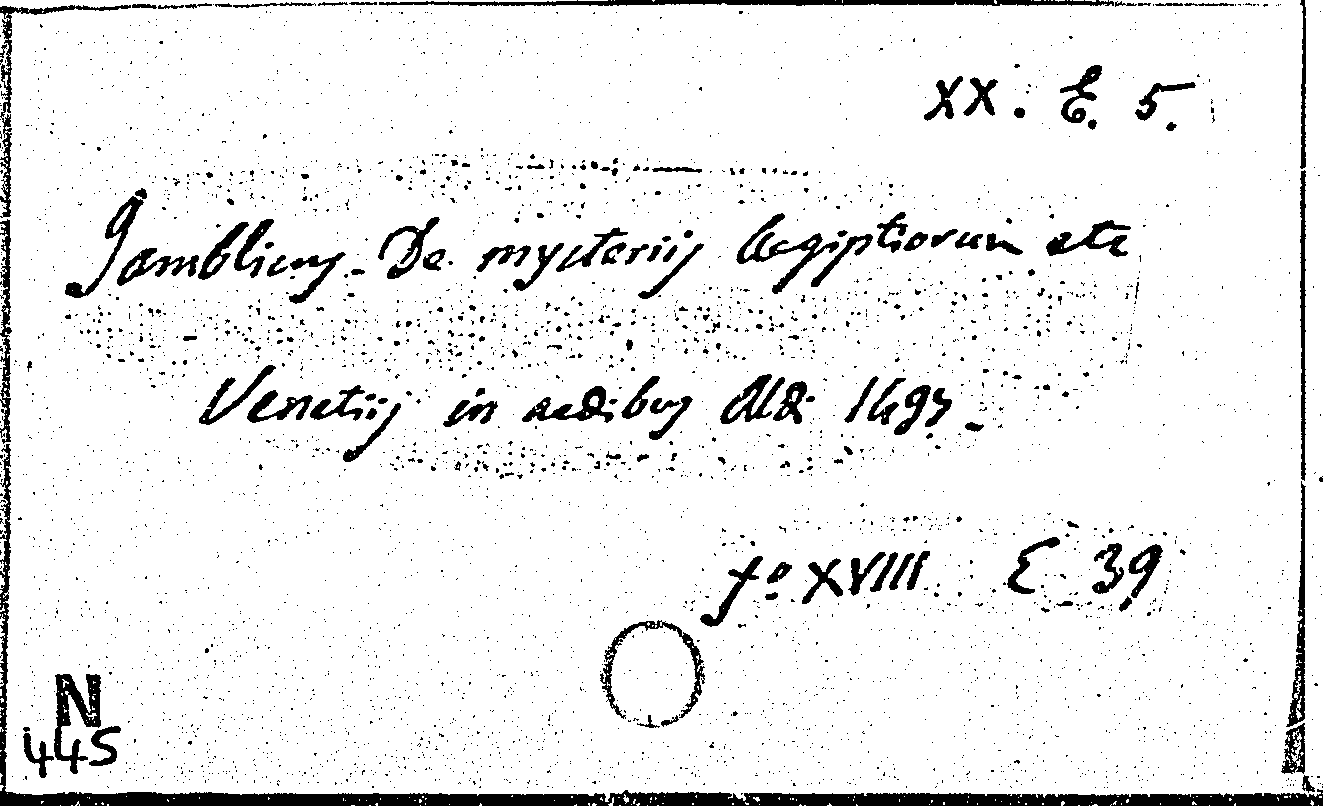 XX. E. 5.
Jamblicus. De mysteriis Aegiptiorum etc
Venetiis in aedibus Aldi 1497.
fo XVIII E 39
N
445